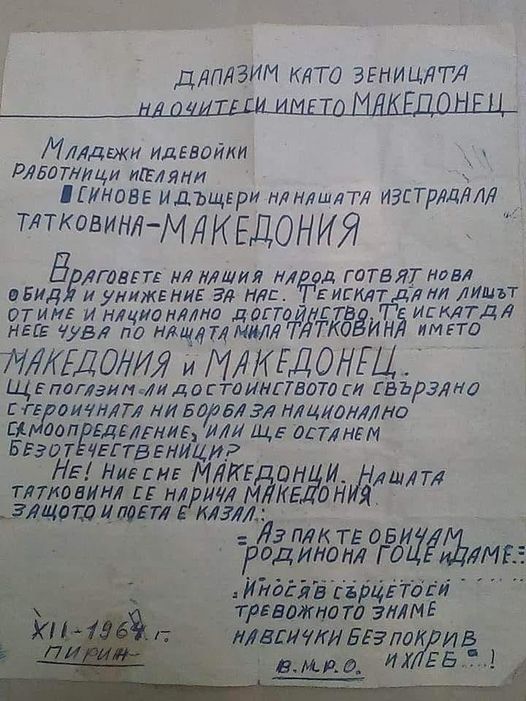 ДА ПАЗИМ КАТО ЗЕНИЦАТА
НА ОЧИТЕ СИ ИМЕТО МАКЕДОНЕЦ
МЛАДЕЖИ И ДЕВОЙКИ
РАБОТНИЦИ И СЕЛЯНИ
СИНОВЕ И ДЪЩЕРИ НА НАШАТА ИЗСТРАДАЛА
ТАТКОВИНА-МАКЕДОНИЯ
ВРАГОВЕТЕ НА НАШИЯ НАРОД ГОТВЯТ НОВА
ОБИДА И УНИЖЕНИЕ ЗА НАС. ТЕ ИСКАТ ДА НИ ЛИШЪТ
ОТ ИМЕ И НАЦИОНАЛНО ДОСТОЙНСТВО. ТЕ ИСКАТ ДА
НЕ СЕ ЧУВА ПО НАШАТА МИЛА ТАТКОВИНА ИМЕТО
МАКЕДОНИЯ И МАКЕДОНЕЦ.
ЩЕ ПОГАЗИМ ЛИ ДОСТОИНСТВОТО СИ СВЪРЗАНО
С ГЕРОИЧНАТА НИ БОРБА ЗА НАЦИОНАЛНО
САМООПРЕДЕЛЕНИЕ, ИЛИ ЩЕ ОСТАНЕМ
БЕЗОТЕЧЕСТВЕНИЦИ?
НЕ! НИЕ СМЕ МАКЕДОНЦИ. НАШАТА
ТАТКОВИНА СЕ НАРИЧА МАКЕДОНИЯ
ЗАЩОТО И ПОЕТА Е КАЗАЛ:
= АЗ ПАК ТЕ ОБИЧАМ
РОДИНО НА ГОЦЕ И ДАМЕ..=
. И НОСЯ В СЪРЦЕТО СИ
ТРЕВОЖНОТО ЗНАМЕ
НА ВСИЧКИ БЕЗ ПОКРИВ
И ХЛЕБ...!
XII-1964 г.
ПИРИН
В.М.Р.О.